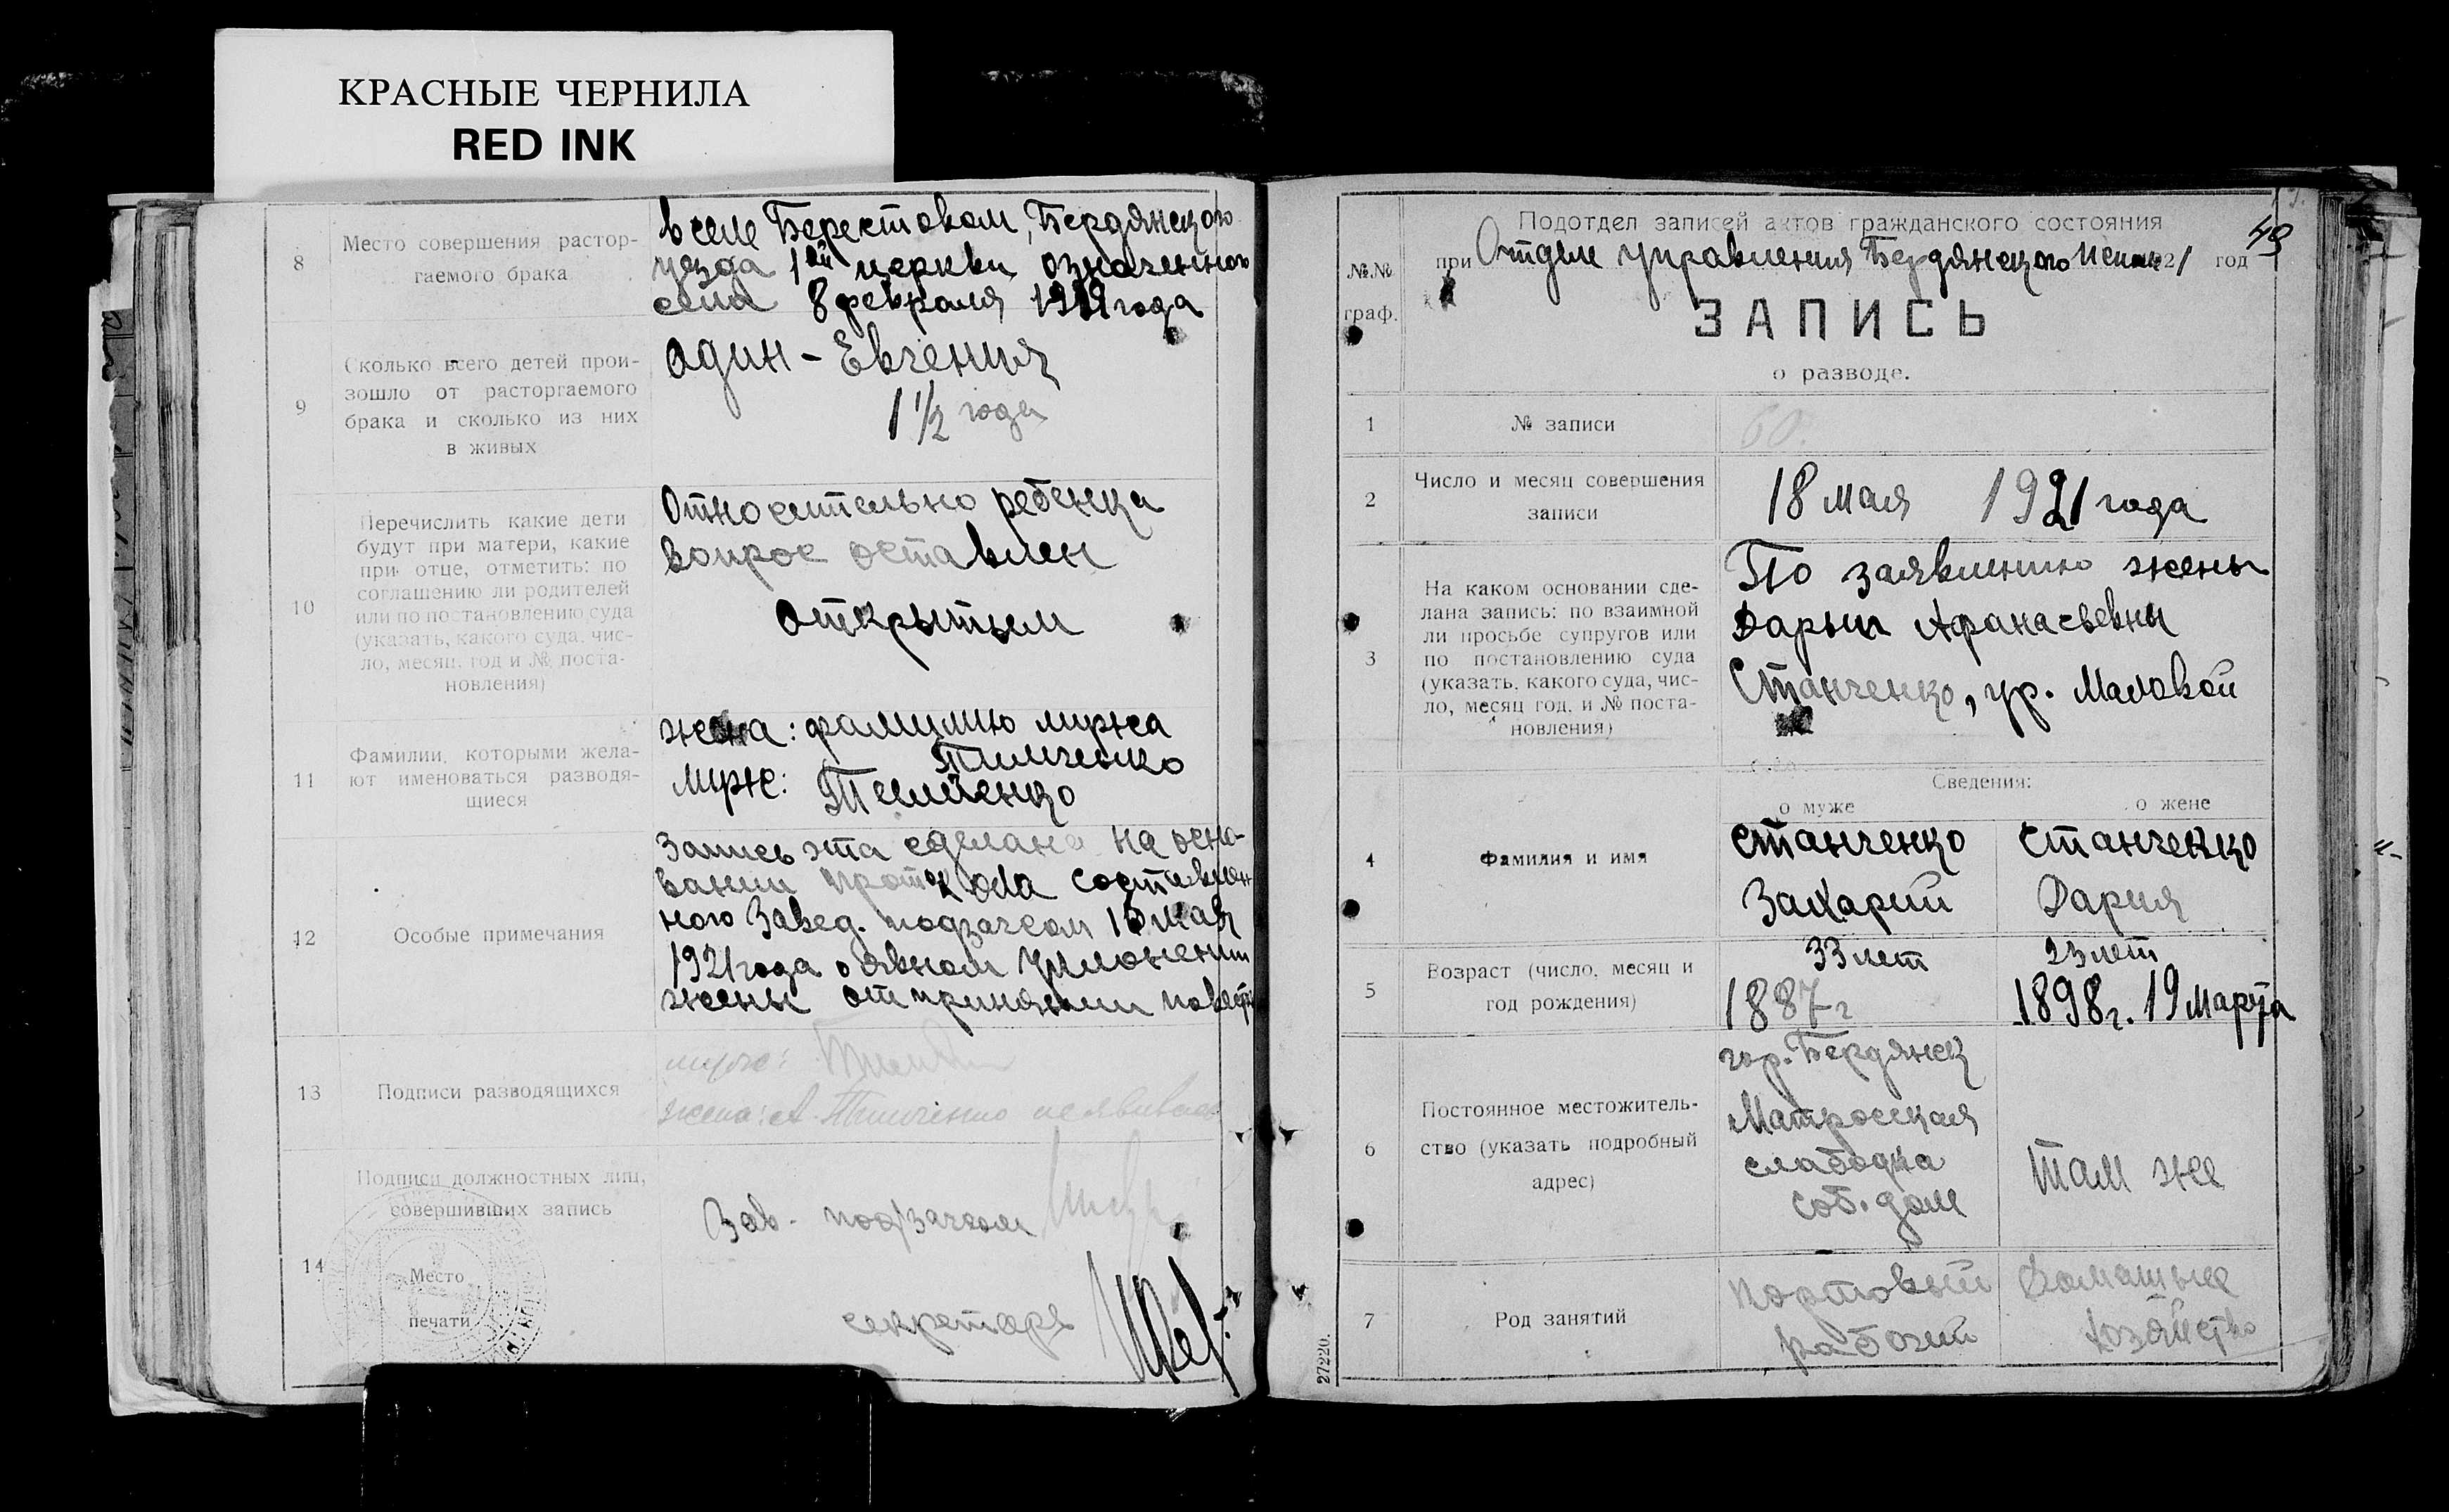 КРАСНЫЕ ЧЕРНИЛА
RED INK
8
Место совершения растор-
гаемого брака
в селе Берестовом, Бердянского
уезда 1ой церкви означенного
села 8 февраля 1919 года
9
Сколько всего детей прои-
зошло от расторгаемого
брака и сколько из них
в живых
один - Евгения
1 1/2 года
10
Перечислить какие дети
будут при матери, какие
при отце, отметить: по
соглашению ли родителей
или по постановлению суда
(указать, какого суда, чис-
ло, месяц, год и № поста-
новления)
Относительно ребенка
вопрос оставлен
открытым
11
Фамилии, которыми жела-
ют именоваться разводя-
щиеся
жена: фамилию мужа
Тимченко
муж: Тимченко
12
Особые примечания
Запись эта сделана на осно-
вании протокола составлен-
ного Завед. подзагсом 18 мая
1921 года о явном уклонении
жены от принятии повест
13
Подписи разводящихся
муж:
жена: А. Тимченко не явилась
14
Подписи должностных лиц,
совершивших запись
Место
печати
Зав. подзагсом
секретарь
49
№№
граф.
Подотдел записей актов гражданского состояния
при Отделе управления Бердянского Исп 21 год
ЗАПИСЬ
о разводе.
1
№ записи
60.
2
Число и месяц совершения
записи
18 мая 1921 года
3
На каком основании сде-
лана запись: по взаимной
ли просьбе супругов или
по постановлению суда
(указать, какого суда, чис-
ло, месяц год, и № поста-
новления)
По заявлению жены
Дарьи Афанасьевны
Станченко, ур. Маловой
Сведения:
о муже
о жене
4
Фамилия и имя
Станченко
Захарий
Станченко
Дария
5
Возраст (число, месяц и
год рождения)
33 лет
1887 г
23 лет
1898 г. 19 марта
6
Постоянное местожитель-
ство (указать подробный
адрес)
гор. Бердянск
Матросская
слободка
соб. дом
там же
7
Род занятий
портовый
рабочий
Домашнее
хозяйство
27220.